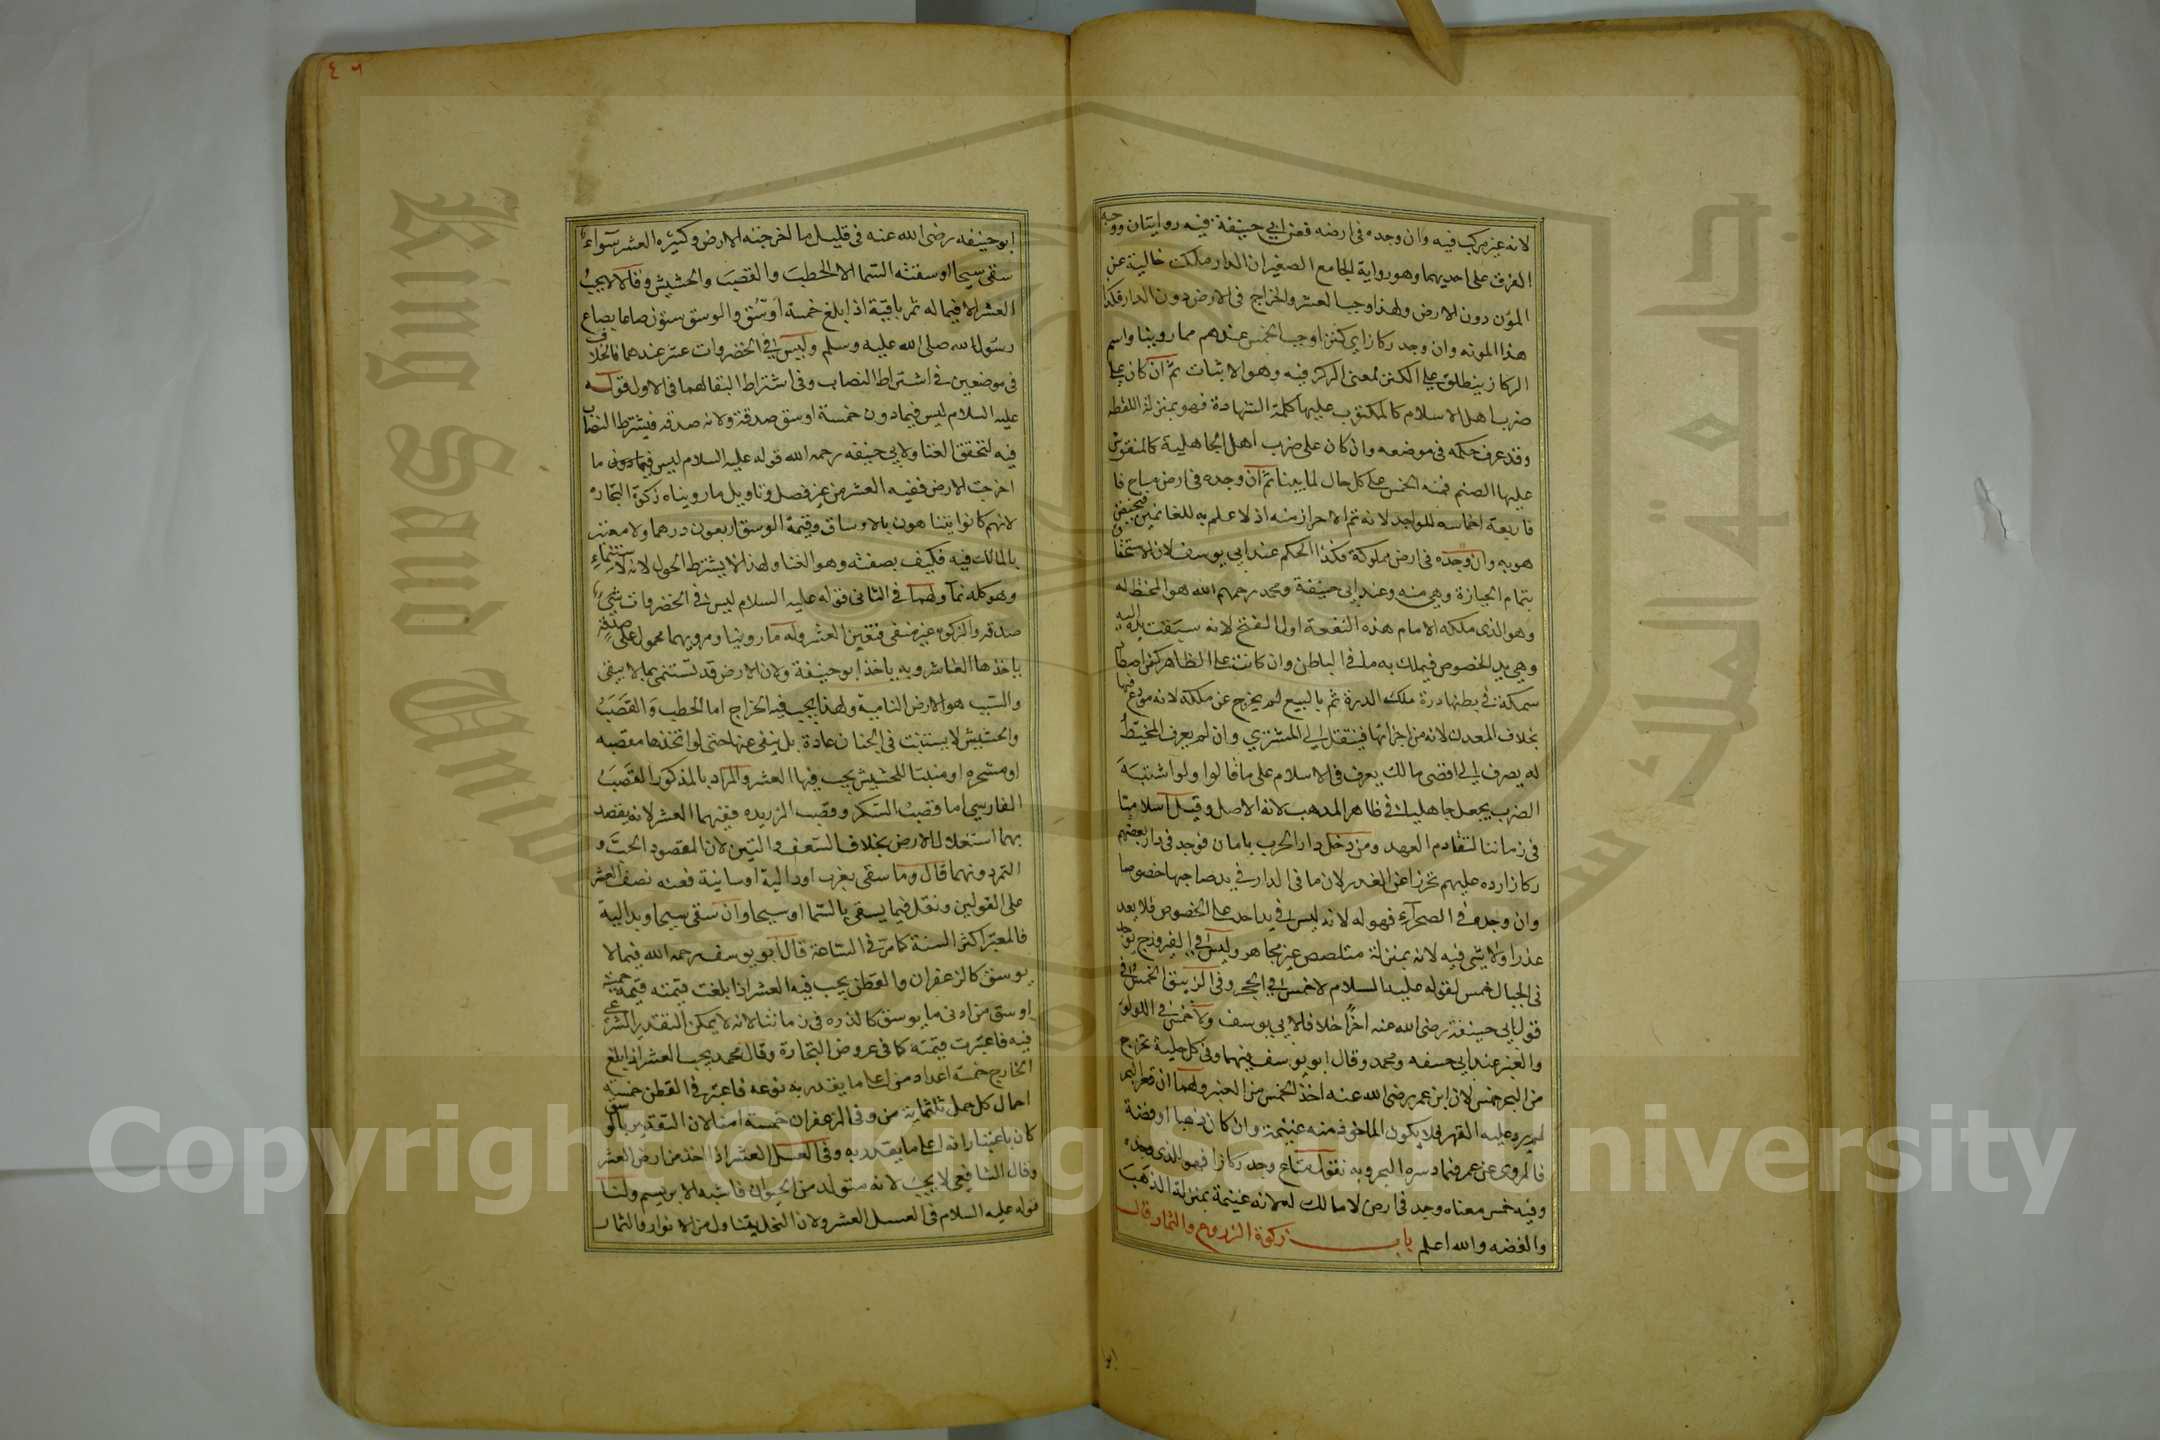 لانه غير مركب فيه وان وجده في ارضه فعن ابي حنيفة فيه روايتان ووجه
الفرق على احديهما وهو رواية الجامع الصغير ان الدار ملكت خالية عن
المؤن دون الارض ولهذا وجب العشر والخراج في الارض دون الدار فكذا
هذا المونه وان وجد ركازا اي كنزا وجب الخمس عندهم مما روينا واسم
الركاز ينطلق على الكنز لمعنى الركز فيه وهو الاثبات ثم ان كان على
ضرب اهل الاسلام كالمكتوب عليها كلمة الشهادة فهو بمنزلة اللقطه
وقد عرف حكمه في موضعه وان كان على ضرب اهل الجاهلية كالمنقوش
عليها الصنم ففيه الخمس على كل حال لما بينا ثم ان وجده في ارض مباح فا
فاربعة اخماسه للواجد لانه تم الاحراز منه اذ لا علم به للغانمين فيختص
هو به وان وجده في ارض مملوكة فكذا الحكم عند ابي يوسف لان الاستحقا
بتمام الحيازة وهي منه وعند ابي حنيفة ومحمد رحمهم الله هو للمختط له
وهو الذي ملكه الامام هذه البقعة اول الفتح لانه سبقت يده اليه
وهي يد الخصوص فيملك به ما في الباطن وان كانت على الظاهر كمن اصطاد
سمكة في بطنها درة ملك الدرة ثم بالبيع لم يخرج عن ملكه لانه مودع فيها
بخلاف المعدن لانه من اجزائها فينتقل الى المشتري وان لم يعرف المختط
له يصرف الى اقصى مالك يعرف في الاسلام على ما قالوا ولو اشتبه
الضرب يجعل جاهليا في ظاهر المذهب لانه الاصل وقيل اسلاميا
في زماننا لتقادم العهد ومن دخل دار الحرب بامان فوجد في دار بعضهم
ركازا رده عليهم تحرزا عن الغدر لان ما في الدار في يد صاحبها خصوصا
وان وجده في الصحراء فهو له لانه ليس في يد احد على الخصوص فلا يعد
غدرا ولا شي فيه لانه بمنزلة متلصص غير مجاهر وليس في الفيروزج يوجد
في الجبال خمس لقوله عليه السلام لا خمس في الحجر وفي الزيبق الخمس في
قول ابي حنيفة رضي الله عنه اخرا خلافا لابي يوسف ولا خمس في اللولو
والعنبر عند ابي حسفه ومحمد وقال ابو يوسف فيهما وفي كل حلية تخرج
من البحر خمس لان ابن عمر رضي الله عنه اخذ الخمس من العنبر ولهما ان قعر البحر
لم يرد عليه القهر فلا يكون الماخوذ منه غنيمة وان كان ذهبا او فضة
فالمروي عن عمر فيما دسره البحر وبه نقول متاع وجد ركازا فهو للذي وجده
وفيه خمس معناه وجد في ارض لا مالك له لانه غنيمة بمنزلة الذهب
والفضه والله اعلم باب زكوة الزروع والثمار قال
ابو
٤٦
ابو حنيفه رضي الله عنه في قليل ما اخرجته الارض وكثيره العشر سواء
سقي سيحا او سقته السما الا الحطب والقصب والحشيش وقالا لا يجب
العشر الا فيما له ثمر باقية اذا بلغ خمسة اوسق والوسق ستون صاعا بصاع
رسول الله صلى الله عليه وسلم وليس في الخضروات عشر عندهما فالخلاف
في موضعين في اشتراط النصاب وفي اشتراط البقا لهما في الاول قوله
عليه السلام ليس فيما دون خمسة اوسق صدقة ولانه صدقه فيشترط النصاب
فيه لتحقق الغنا ولابي حنيفه رحمه الله قوله عليه السلام ليس فيما دون ما
اخرجت الارض ففيه العشر من غير فصل وتاويل ما رويناه زكوة التجاره
لانهم كانوا يتبايعون بالاوساق وقيمة الوسق اربعون درهما ولا معتبر
بالمالك فيه فكيف بصفته وهو الغنا ولهذا لا يشترط الحول لانه للاستنماء
وهو كله نما ولهما في الثاني قوله عليه السلام ليس في الخضروات شيء
صدقه والزكوه غير منفي فتعين العشر وله ما روينا ومرويهما محمول على صدقة
ياخذها العاشر وبه ياخذ ابو حنيفة ولان الارض قد تستنمي بما لا يبقى
والسبب هو الارض النامية ولهذا يجب فيه الخراج اما الحطب والقصب
والحشيش لا يستنبت في الجنان عادة بل ينفي عنها حتى لو اتخذها مقصبه
او مشجره او منبتا للحشيش يجب فيها العشر والمراد بالمذكور القصب
الفارسي اما قصب السكر وقصب الزريره ففيهما العشر لانه يقصد
بهما استغلال الارض بخلاف السعف والتبن لان المقصود الحب و
التمر دونهما قال وما سقي بغرب او دالية او سانية ففيه نصف العشر
على القولين ونقل فيما يسقى بالسما او سيحا وان سقي سيحا وبدالية
فالمعتبر اكثر السنة كما مر في السائمة قال ابو يوسف رحمه الله فيما لا
يوسق كالزعفران والقطن يجب فيه العشر اذا بلغت قيمته قيمة خمسة
اوسق من ادنى ما يوسق كالذره في زماننا لانه لا يمكن التقدير الشرعي
فيه فاعتبرت قيمته كما في عروض التجارة وقال محمد يجب العشر اذا بلغ
الخارج خمسة اعداد من اعلى ما يقدر به نوعه فاعتبر في القطن خمسة
احمال كل حمل ثلثماية من وفي الزعفران خمسة امنا لان التقدير بالوسق
كان باعتبار انه اعلى ما يقدر به وفي العسل العشر اذا اخذ من ارض العشر
وقال الشافعي لا يجب لانه متولد من الحيوان فاشبه الابريسم ولنا
قوله عليه السلام في العسل العشر ولان النحل يتناول من الانوار والثمار
King Saud University
جامعة الملك سعود
Copyright © King Saud University